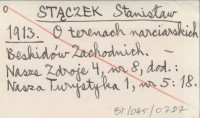 o STĄCZEK Stanisław
1913. O terenach narciarskich
Beskidów Zachodnich. –
Nasze Zdroje 4, nr 8, dod.:
Nasza Turystyka 1, nr 5: 18.
BT/045/0727